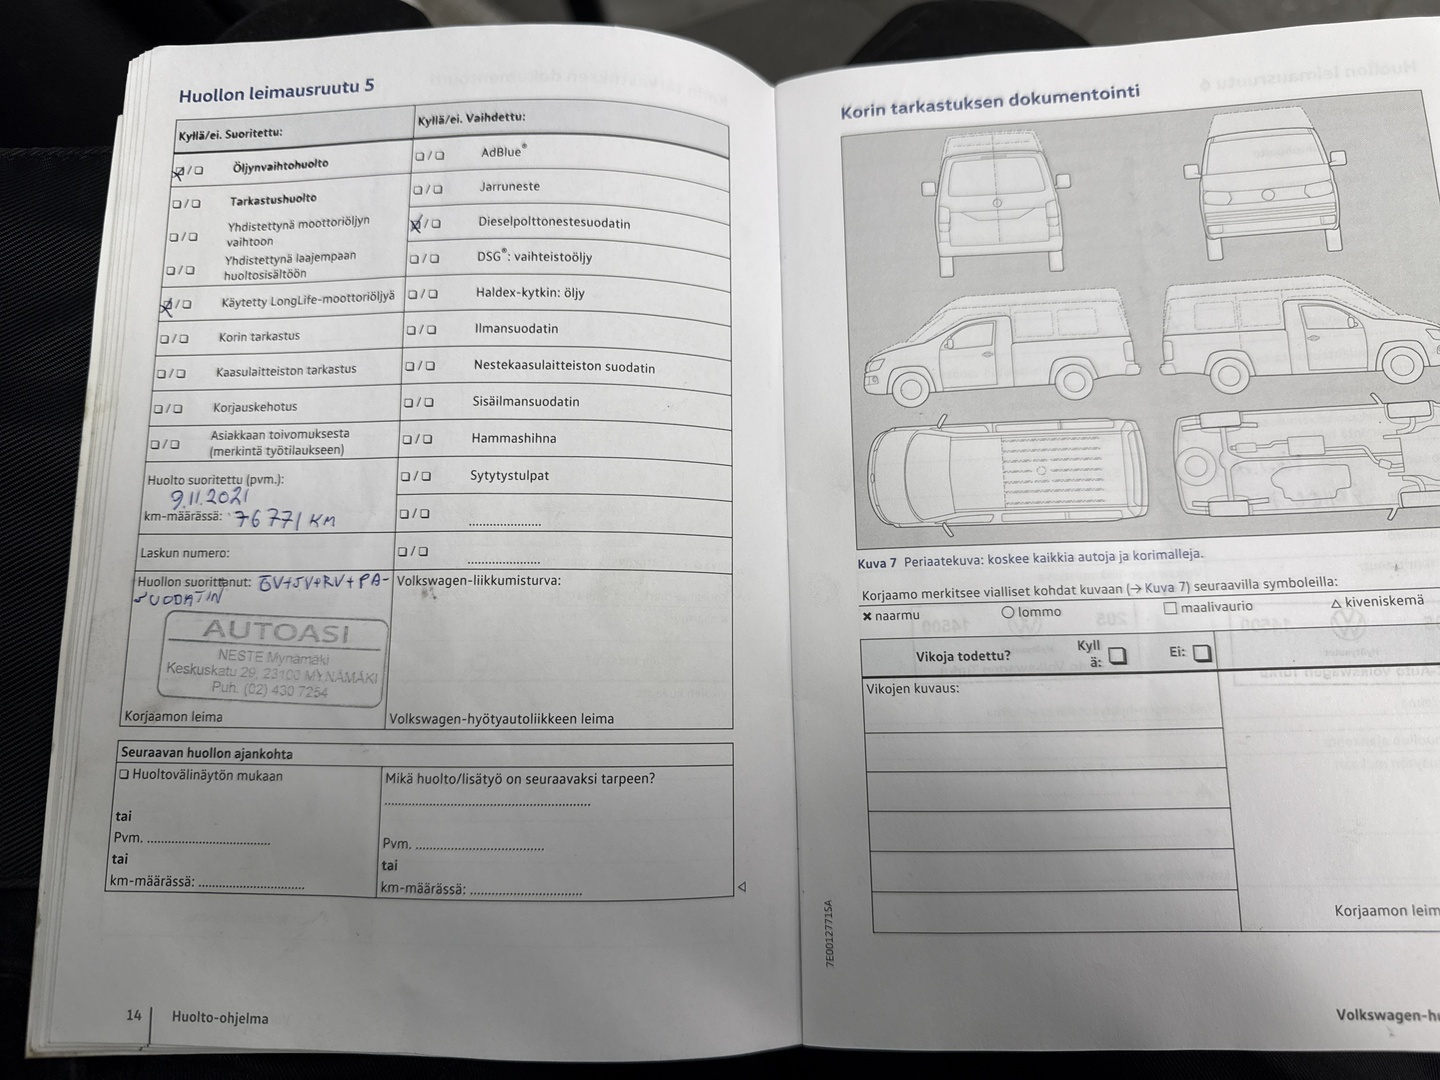 Huollon leimausruutu 5
Kyllä/ei. Suoritettu:
Öljynvaihtohuolto
Tarkastushuolto
Yhdistettynä moottoriöljyn
vaihtoon
Yhdistettynä laajempaan
huoltosisältöön
Käytetty LongLife-moottoriöljyä
Korin tarkastus
Kaasulaitteiston tarkastus
Korjauskehotus
Asiakkaan toivomuksesta
(merkintä työtilaukseen)
Huolto suoritettu (pvm.):
9.11.2021
km-määrässä: 76771 KM
Laskun numero:
Huollon suorittanut: ÖV+SV+RV+PA-
SUODATIN
AUTOASI
NESTE Mynämäki
Keskuskatu 29, 23100 MYNÄMÄKI
Puh. (02) 430 7254
Korjaamon leima
Kyllä/ei. Vaihdettu:
AdBlue®
Jarruneste
Dieselpolttonestesuodatin
DSG®: vaihteistoöljy
Haldex-kytkin: öljy
Ilmansuodatin
Nestekaasulaitteiston suodatin
Sisäilmansuodatin
Hammashihna
Sytytystulpat
Volkswagen-liikkumisturva:
Volkswagen-hyötyautoliikkeen leima
Seuraavan huollon ajankohta
Huoltovälinäytön mukaan
tai
Pvm.
tai
km-määrässä:
Mikä huolto/lisätyö on seuraavaksi tarpeen?
Pvm.
tai
km-määrässä:
14 Huolto-ohjelma
Korin tarkastuksen dokumentointi
Kuva 7 Periaatekuva: koskee kaikkia autoja ja korimalleja.
Korjaamo merkitsee vialliset kohdat kuvaan (→ Kuva 7) seuraavilla symboleilla:
naarmu lommo maalivaurio kiveniskemä
Vikoja todettu? Kyll
ä: Ei:
Vikojen kuvaus:
Korjaamon leim
7E0012771SA
Volkswagen-h